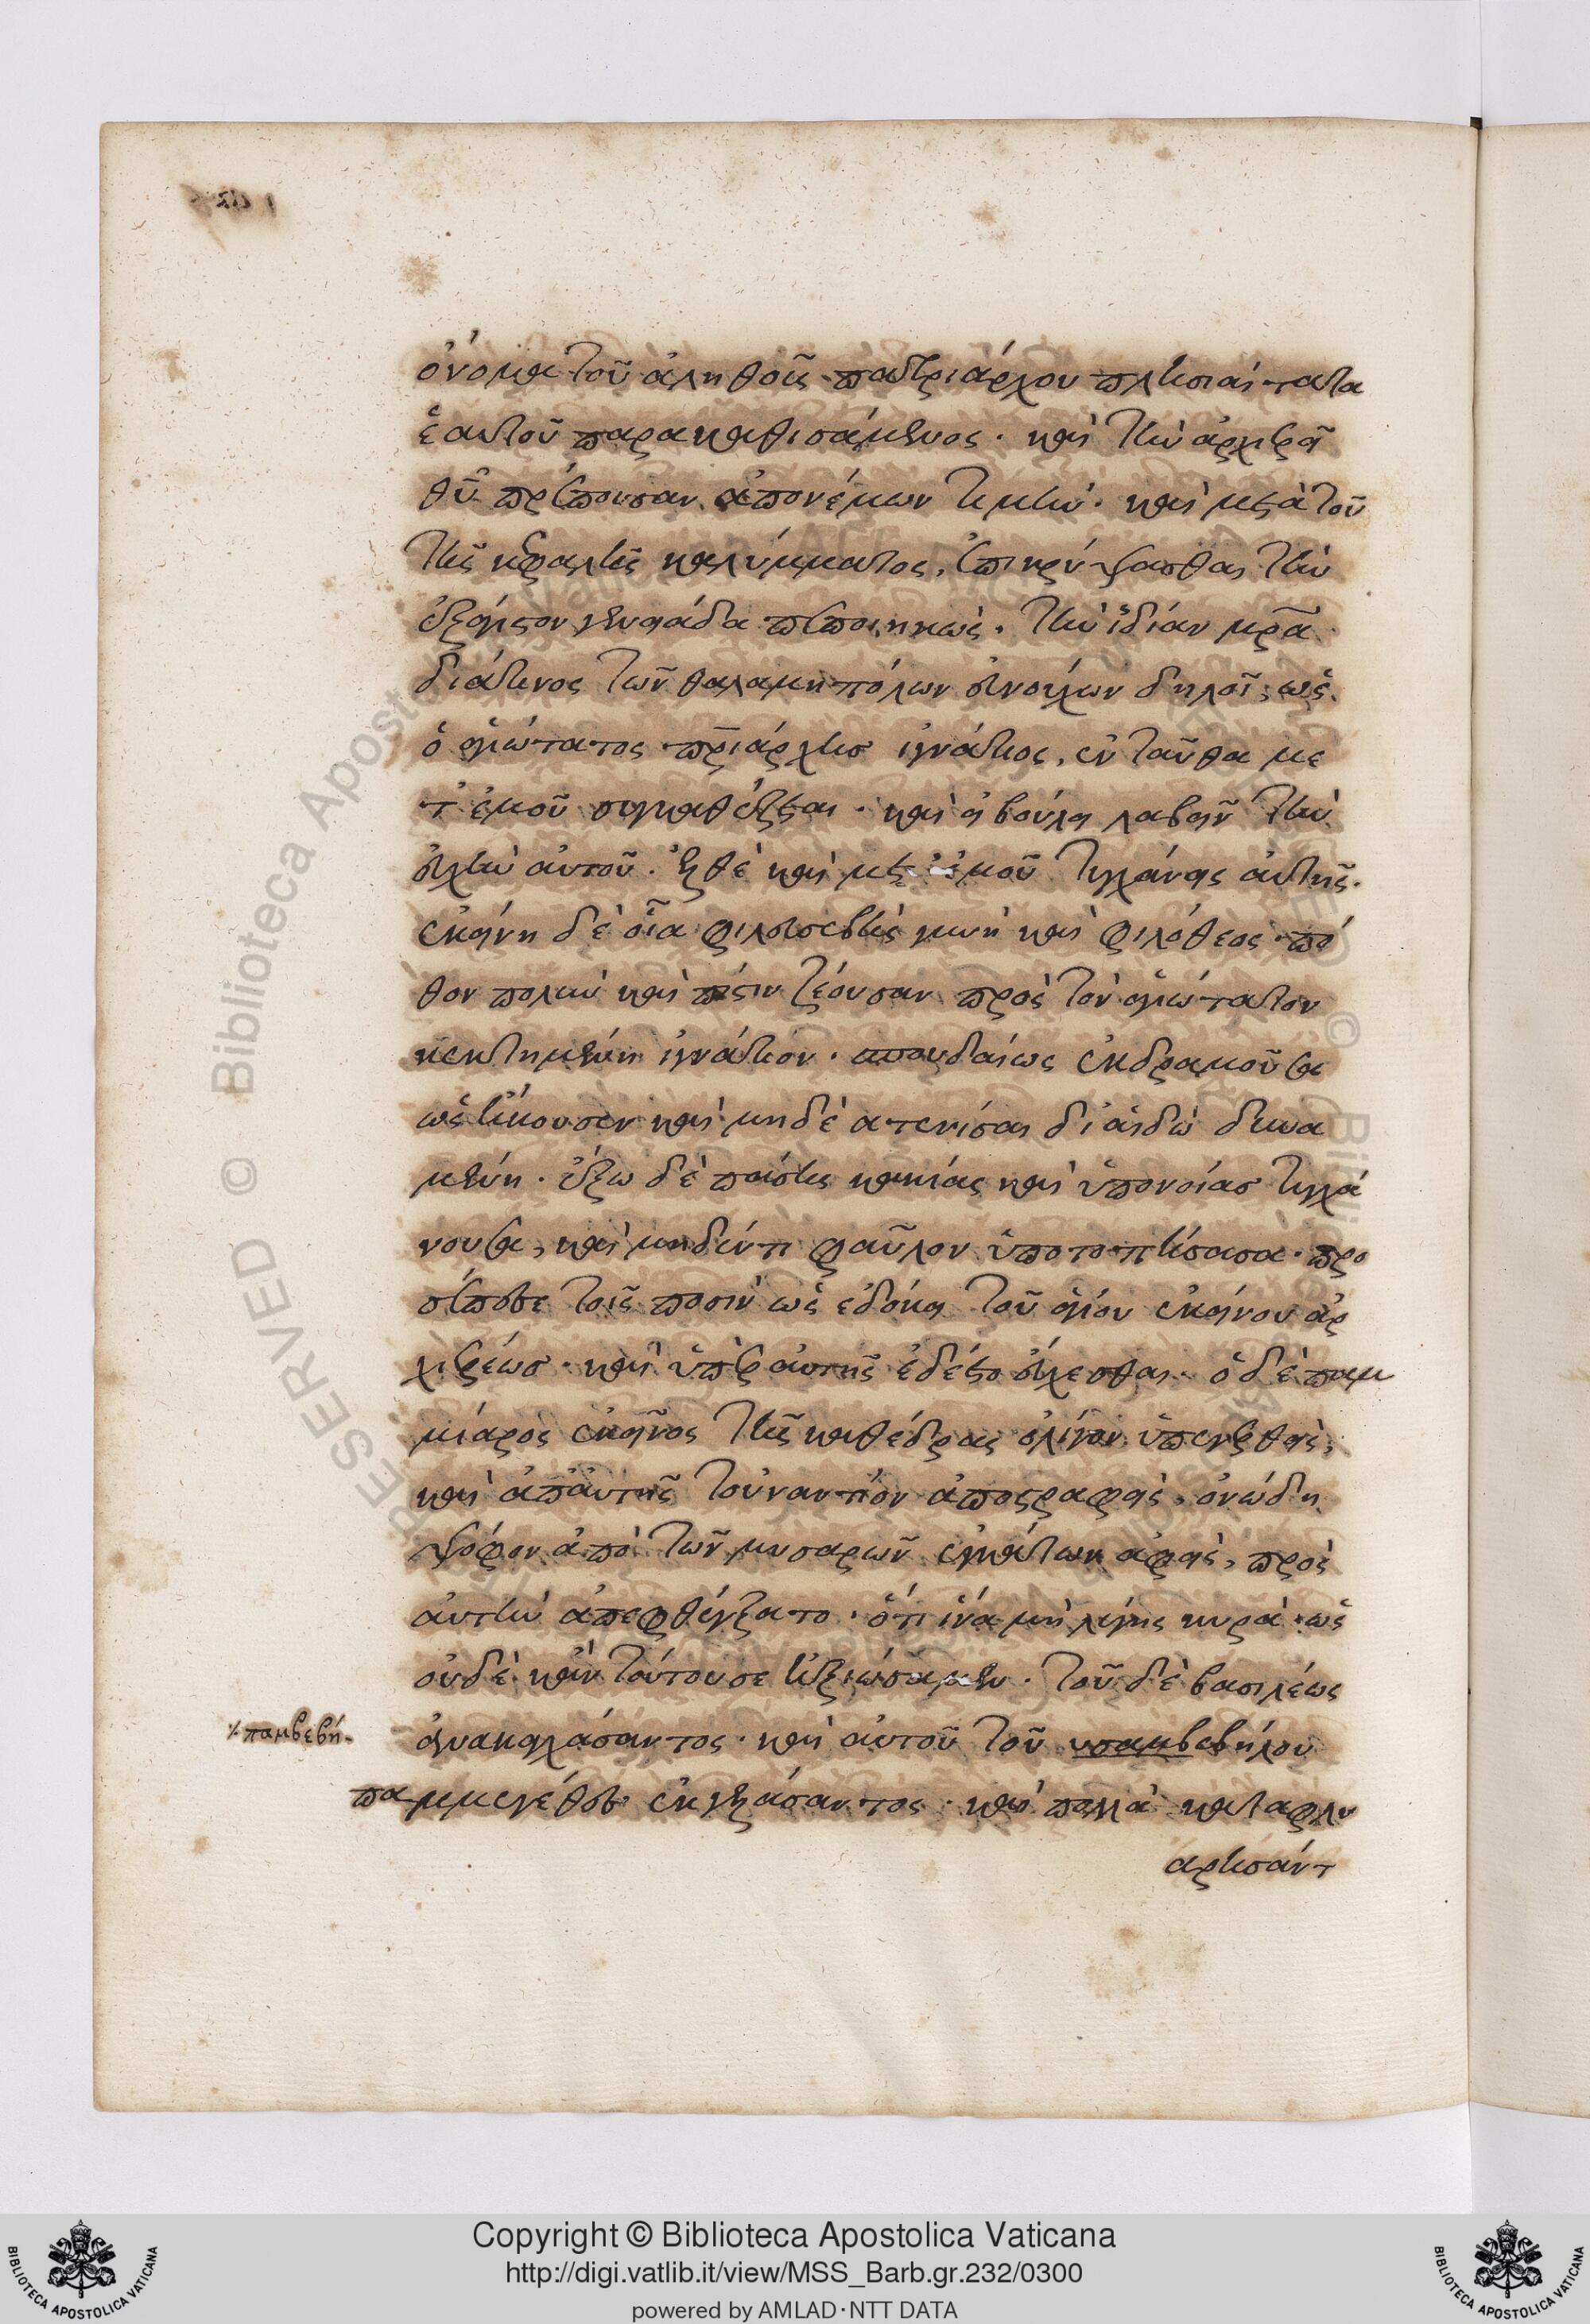 ὀνόματι τοῦ ἀληθοῦς πατριάρχου πλησιαίτατα
ἑαυτοῦ παρακαθισάμενος· καὶ τὴν ἀρχιερεῖ
θῦ πρέπουσαν ἀπονέμων τιμήν· καὶ μετὰ τοῦ
τῆς κεφαλῆς καλύμματος, ἐπικρύψασθαι τὴν
ἐξάγιστον γενειάδα πεποιηκὼς, τὴν ἰδίαν μρα
διά τινος τῶν θαλαμηπόλων εὐνούχων δηλοῖ, ὡς
ὁ ἁγιώτατος πριάρχης ἰγνάτιος, ἐνταῦθα με
τ ἐμοῦ συγκαθέζεται· καὶ εἰ βούλει λαβεῖν τὴν
εὐχὴν αὐτοῦ· ἐλθὲ καὶ μετ ἐμοῦ τυγχάνεις αὐτῆς.
ἐκείνη δὲ οἷα φιλευσεβὴς γυνὴ καὶ φιλόθεος· πό
θον πολὺν καὶ πίστιν ζέουσαν πρὸς τὸν ἁγιώτατον
κεκτημένη ἰγνάτιον· σπουδαίως ἐκδραμοῦσα
ὡς ἤκουσεν καὶ μηδὲ ἀτενίσαι δι αἰδὼ δυνα
μένη· ἔξω δὲ πάσης κακίας καὶ ὑπονοίας τυγχά
νουσα, καὶ μηδέν τι φαῦλον ὑποτοπήσασα· προ
σέπεσε τοῖς ποσὶν ὡς ἐδόκει τοῦ ἁγίου ἐκείνου ἀρ
χιερέως· καὶ ὑπὲρ αὐτῆς ἐδέετο εὔχεσθαι· ὁ δὲ παμ
μίαρος ἐκεῖνος τῆς καθέδρας ὀλίγον ὑπεγερθεὶς,
καὶ ἀπ αὐτῆς τοὐναντίον ἀποστραφεὶς, ὀνώδη
ψόφον ἀπὸ τῶν μυσαρῶν ἐγκάτων ἀφεὶς, πρὸς
αὐτὴν ἀπεφθέγξατο· ὅτι ἵνα μὴ λέγῃς κυρά· ὡς
οὐδὲ κἂν τούτου σε ἠξιώσαμεν· τοῦ δὲ βασιλέως
ἀνακαγχάσαντος· καὶ αὐτοῦ τοῦ υσαμβεβήλου
⁒ παμβεβή-
παμμεγέθες ἐκγελάσαντος· καὶ πολλὰ καταφλυ
αρησάντ